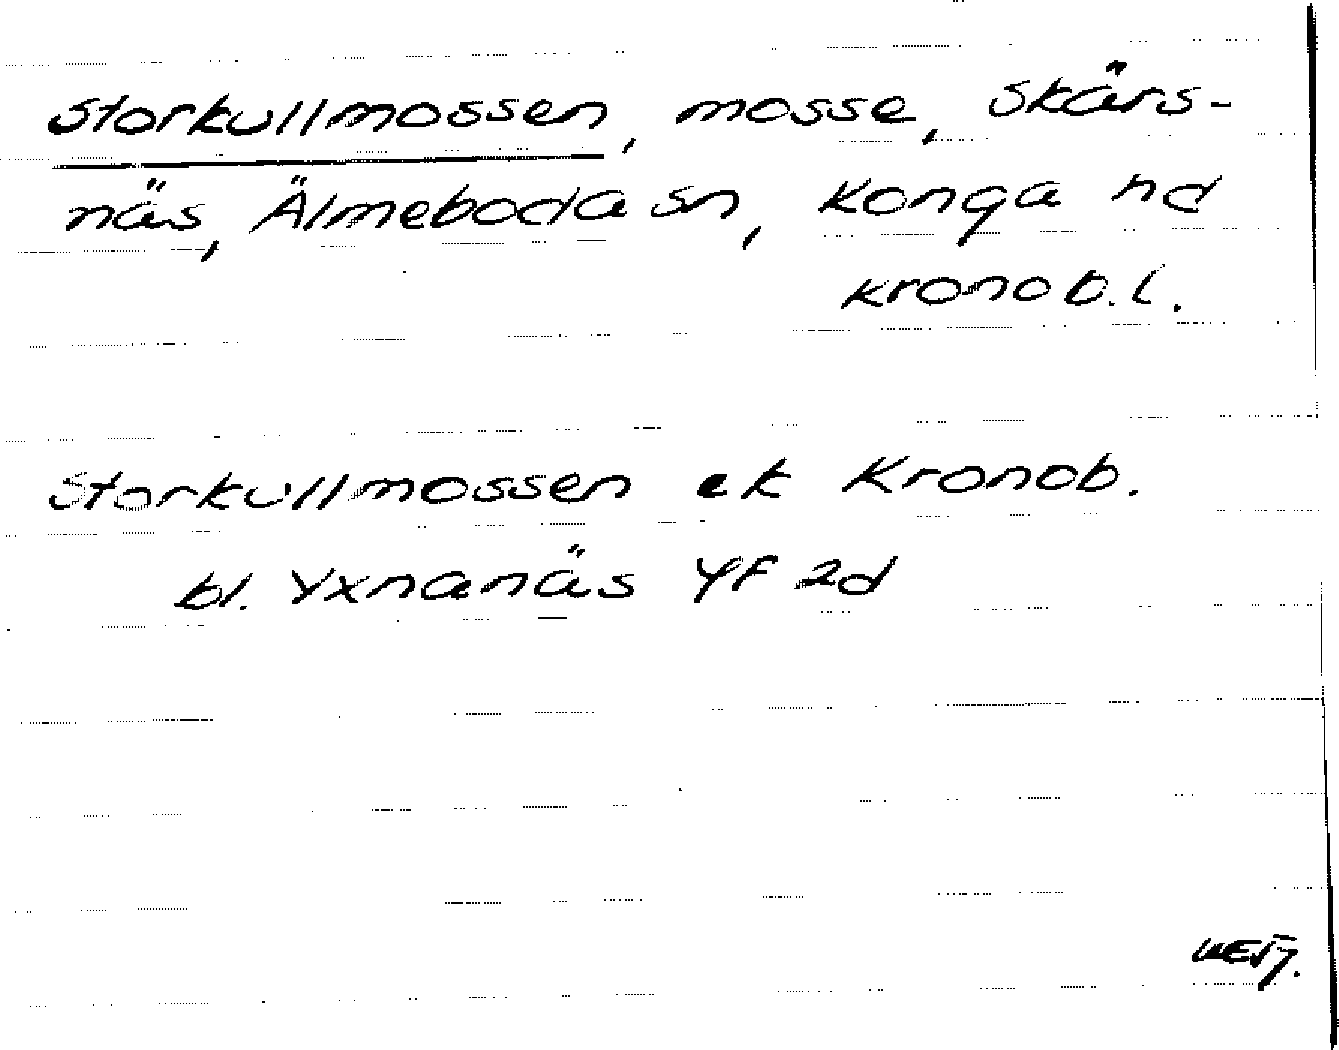 Storkullmossen, mosse, Skärs-
näs, Älmeboda sn, Konga hd
Kronob.l.
Storkullmossen ek Kronob.
bl. Yxnanäs YF 2d